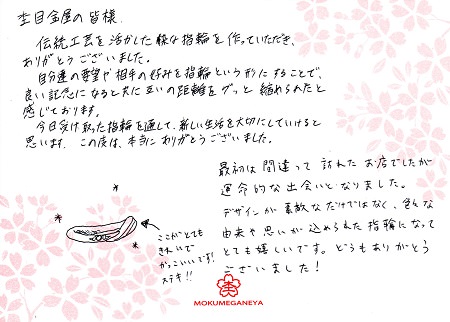 杢目金屋の皆様
伝統工芸を活かした様な指輪を作っていただき、
ありがとうございました。
自分達の要望や相手の好みを指輪という形にすることで、
良い記念になると共に互いの距離をグッと縮められたと
感じております。
今日受け取った指輪を通して、新しい生活を大切にしていけると
思います。この度は、本当にありがとうございました。
最初は間違って訪れたお店でしたが
運命的な出会いとなりました。
デザインが素敵なだけではなく、色んな
由来や思いが込められた指輪になって
とても嬉しいです。どうもありがとう
ございました!
ここがとても
きれいで
かっこいいです!
ステキ!!
MOKUMEGANEYA